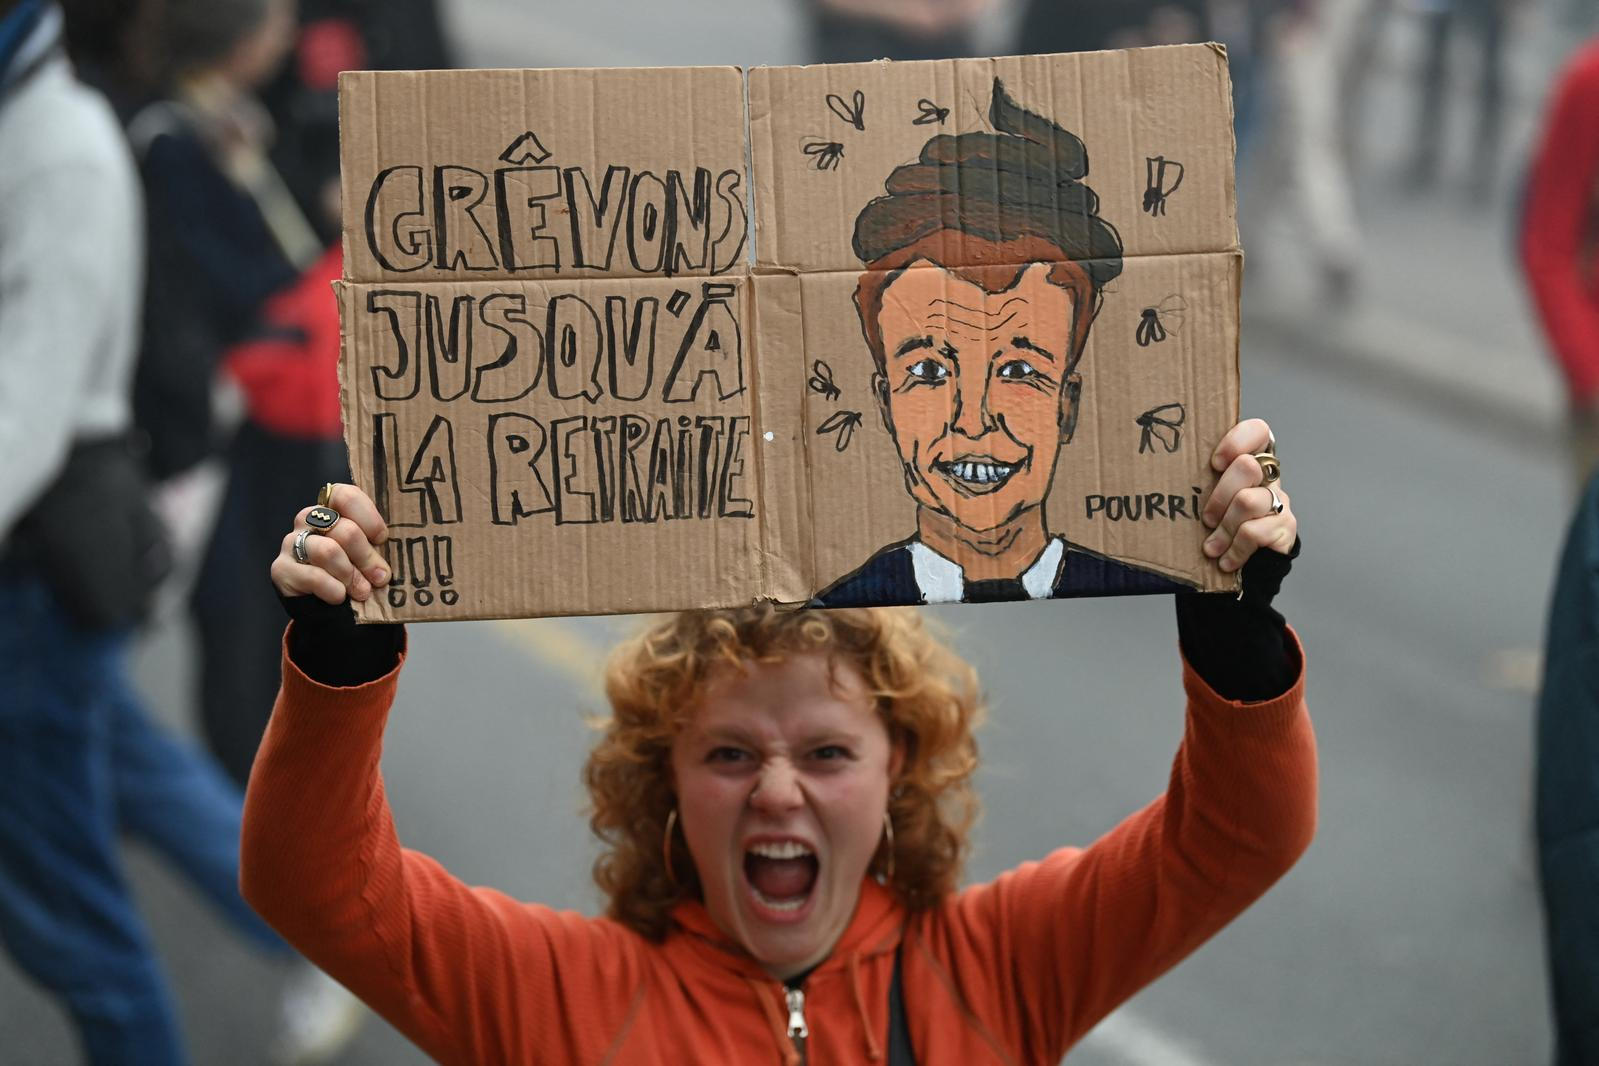 GRÊVONS
JUSQU'À
LA RETRAiTE
!!!
POURRi